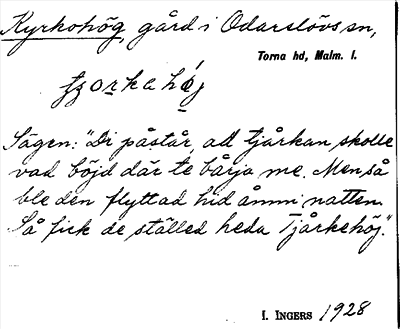 Kyrkohög, gård i Odarslövs sn,
Torna hd, Malm. l.
Sägen: "Di påstår, ad tjårkan skolle
vad böjd där te bårja me. Men så
ble den flyttad hid åmm natten.
Så fick de ställed heda Tjårkehöj."
I. INGERS 1928